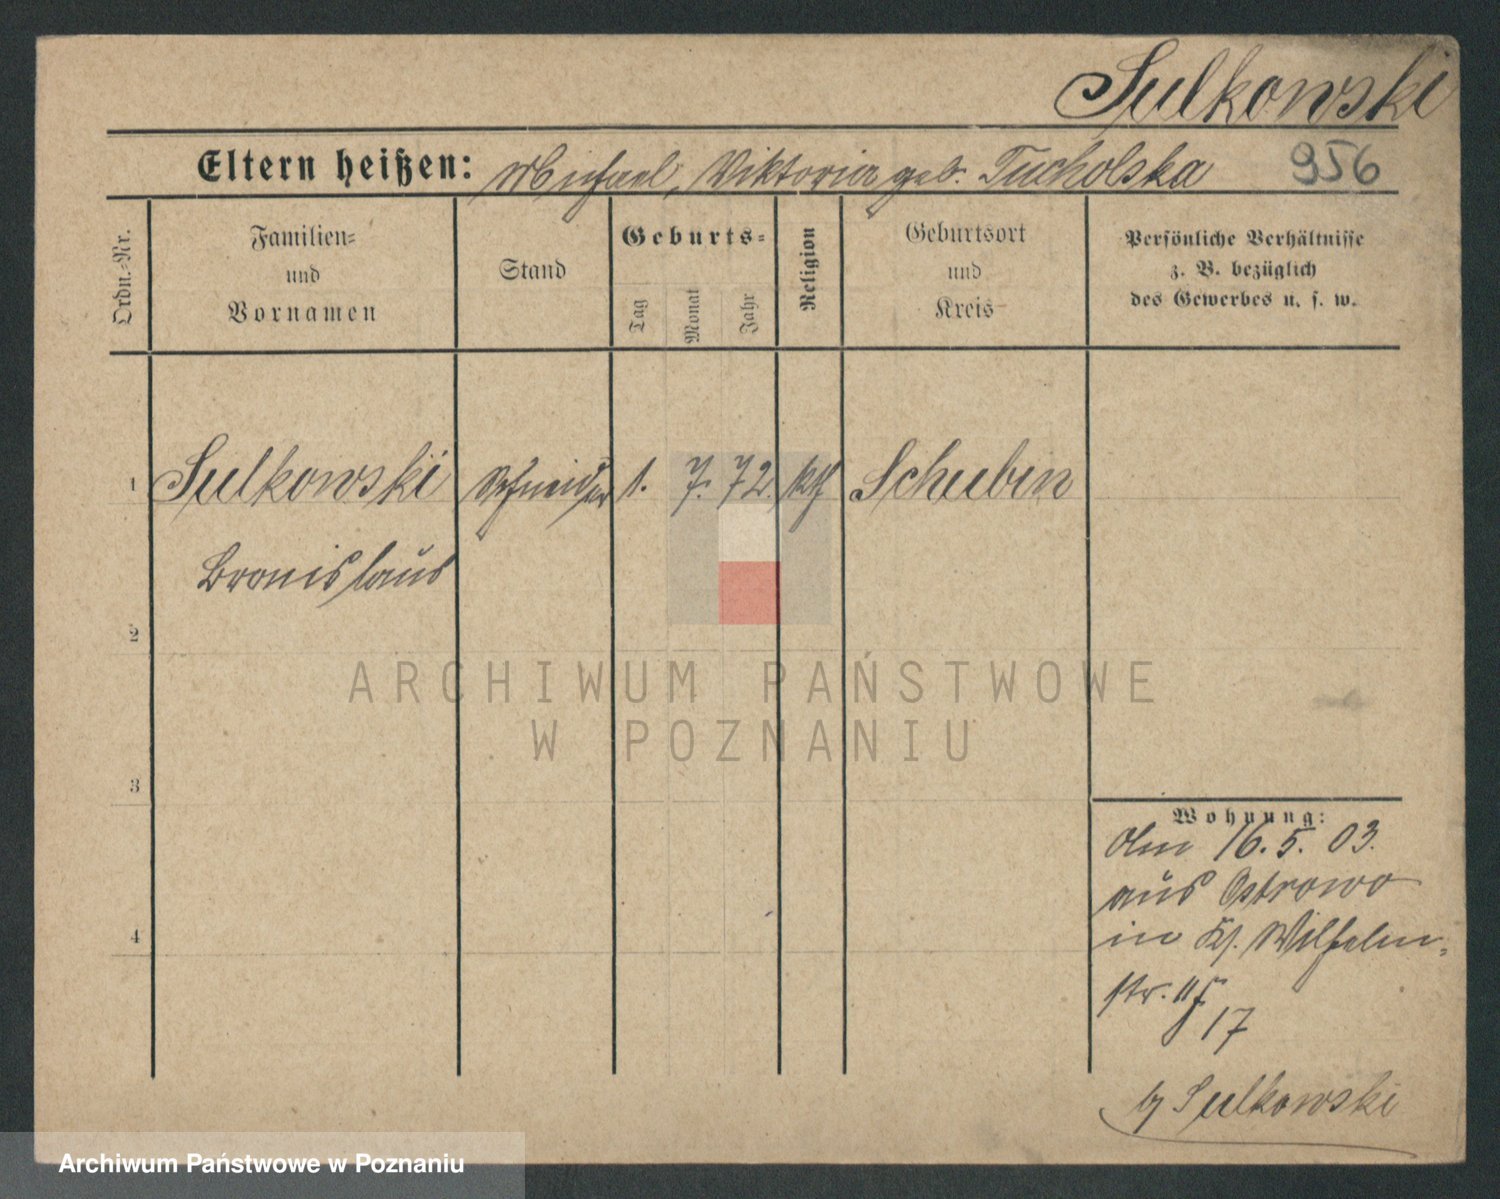 Sulkowski
Eltern heißen: Michael, Viktoria geb. Tucholska 956
Ordn.-Nr.
Familien-
und
Vornamen
Stand
Geburts-
Tag
Monat
Jahr
Religion
Geburtsort
und
Kreis
Persönliche Verhältnisse
z. B. bezüglich
des Gewerbes u. s. w.
1 Sulkowski Schneider 1. 7. 72. kth Schubin
Bronislaus
2
3
4
Wohnung:
Am 16. 5. 03.
aus Ostrowo
in Kl. Wilhelm-
str.
17
b/ Sulkowski
ARCHIWUM PAŃSTWOWE
W POZNANIU
Archiwum Państwowe w Poznaniu